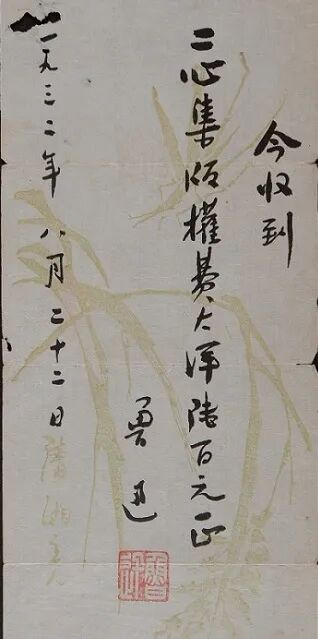 今收到
二心集版權費大洋陸百元正
魯迅
一九三二年八月二十二日
魯迅